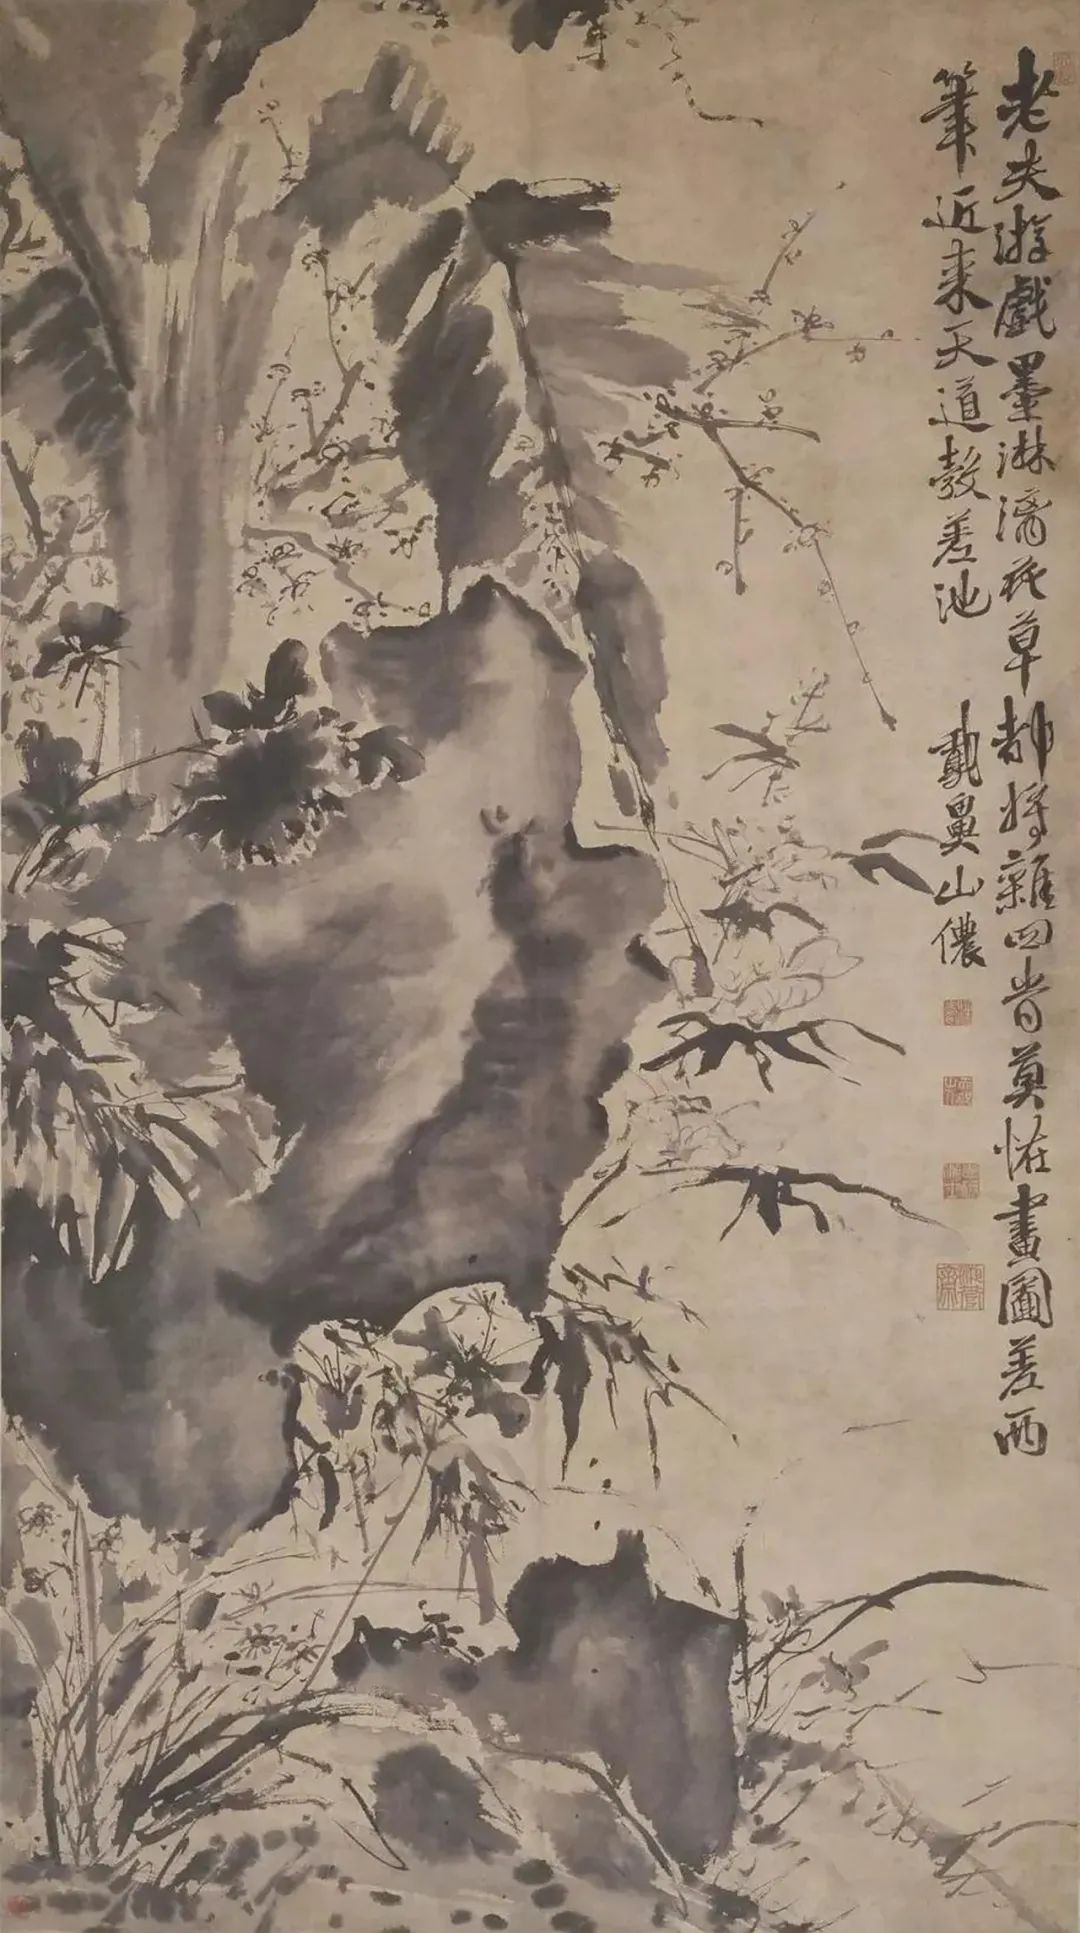 老夫游戲墨淋漓花草都將雜四時莫怪畫圖差兩
筆近來天道彀差池
戴鼻山儂